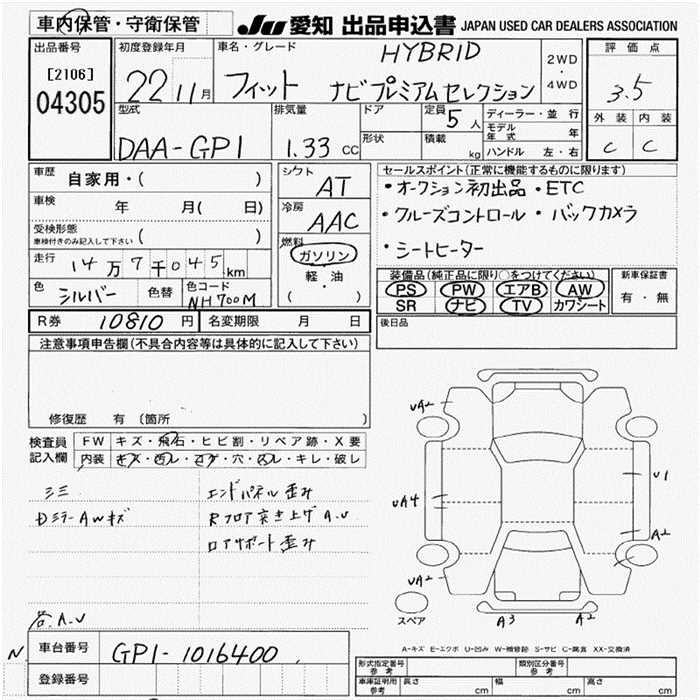 車内保管・守衛保管 JU 愛知 出品申込書 JAPAN USED CAR DEALERS ASSOCIATION
出品番号 初度登録年月 車名・グレード HYBRID 2WD ・ 4WD 評価点
[2106] 22 11月 フィット ナビプレミアムセレクション 3.5
04305 型式 排気量 ドア 定員 5人 ディーラー・並行 外装 内装
DAA-GP1 1.33 CC 形状 積載 kg モデル年式 年 C C
ハンドル 左・右
車歴 自家用・( ) シフト AT セールスポイント(正常に機能するものに限ります)
車検 年 月( 日) 冷房 AAC ・オークション初出品・ETC
受検形態 ( ) ・クルーズコントロール・バックカメラ
車検付きのみ記入して下さい 燃料 ガソリン ・シートヒーター
走行 14万7千045km 軽・油
色 シルバー 色替 色コード NH700M ( )
装備品(純正品に限り○をつけてください) 新車保証書
PS PW エアB AW 有・無
SR ナビ TV カワシート
R券 10810円 名変期限 月 日 後日品
注意事項申告欄(不具合内容等は具体的に記入して下さい)
修復歴 有 〔箇所 〕
検査員 FW キズ・飛石・ヒビ割・リペア跡・X要
記入欄 内装 キズ・汚レ・コゲ・穴・凹レ・キレ・破レ
ミミ エンドパネル歪み
DミラーAWキズ Rフロア突き上げA.U
ロアサポート歪み
各A.U
UA2
UA4
UA2
U1
A2
A3 A2
スペア
A-キズ E-エクボ U-凹み W-補修跡 S-サビ C-腐食 XX-交換済
N. 車台番号 GP1-1016400
登録番号
形式指定番号 参考 類別区分番号 参考
車庫証明用 参考 長さ cm 幅 cm 高さ cm